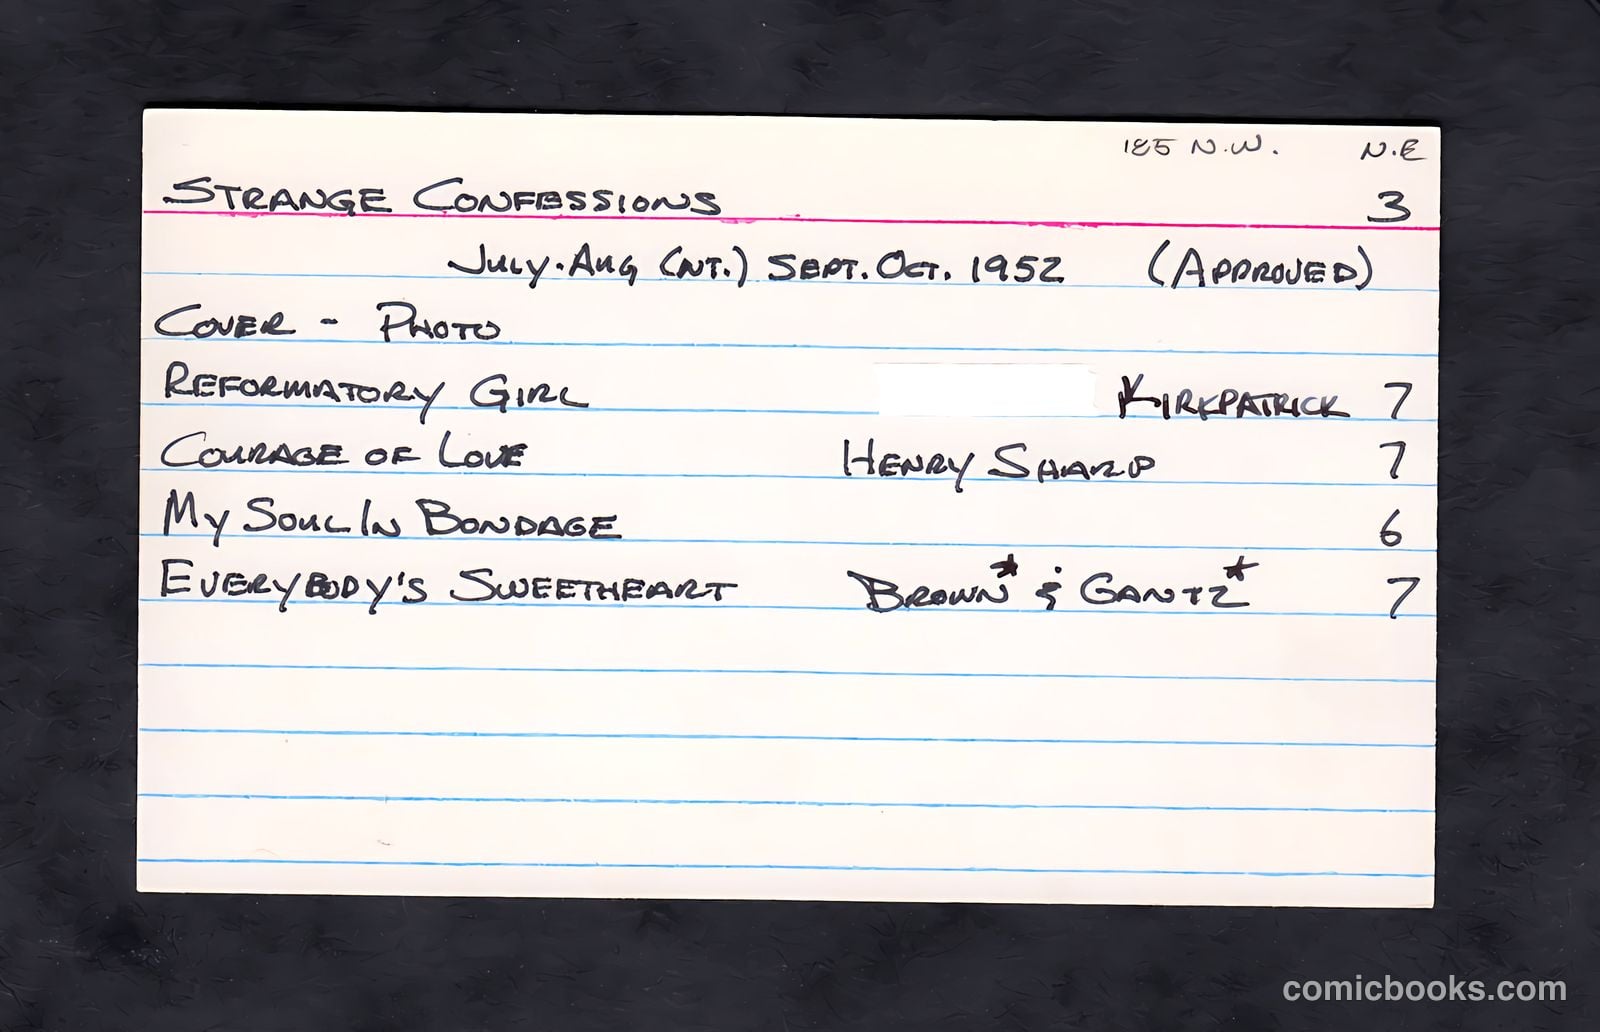 185 N.W. N.E
STRANGE CONFESSIONS 3
JULY-AUG (NT.) SEPT. OCT. 1952 (APPROVED)
COVER - PHOTO
REFORMATORY GIRL KIRKPATRICK 7
COURAGE OF LOVE HENRY SHARP 7
MY SOUL IN BONDAGE 6
EVERYBODY'S SWEETHEART BROWN* & GANTZ* 7
comicbooks.com